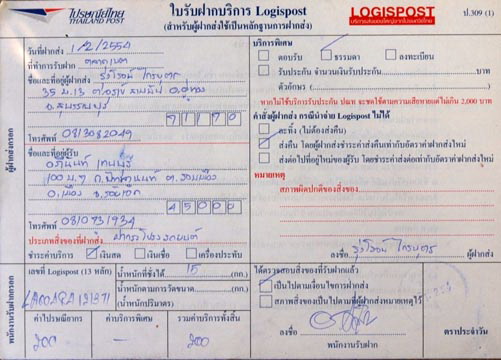 ไปรษณีย์ไทย
THAILAND POST
ใบรับฝากบริการ Logispost
(สำหรับผู้ฝากส่งใช้เป็นหลักฐานการฝากส่ง)
LOGISPOST
ป.309 (1)
วันที่ฝากส่ง 1/2/2554
ที่ทำการรับฝาก
ชื่อและที่อยู่ผู้ฝากส่ง รุ่งโรจน์ ไกรบุตร
35 ม.13 อ.อู่ทอง
จ.สุพรรณบุรี
71170
โทรศัพท์ 0813082049
ชื่อและที่อยู่ผู้รับ
100 ม.9
อ.เมือง จ.ร้อยเอ็ด
45000
โทรศัพท์ 0810731934
ประเภทสิ่งของที่ฝากส่ง
ชำระค่าบริการ เงินสด เงินเชื่อ เครื่องประทับ
เลขที่ Logispost (13 หลัก)
น้ำหนักที่ชั่งได้ 15 (กก.)
น้ำหนักตามการวัดขนาด (กก.)
(น้ำหนักปริมาตร)
ค่าไปรษณียากร
ค่าบริการพิเศษ
รวมค่าบริการทั้งสิ้น
200
200
ผู้ฝากส่งกรอก
พนักงานรับฝากกรอก
บริการพิเศษ
ตอบรับ ธรรมดา ลงทะเบียน
รับประกัน จำนวนเงินรับประกัน บาท
ตัวอักษร ( )
หากไม่ใช้บริการรับประกัน ปณท จะชดใช้ตามความเสียหายแต่ไม่เกิน 2,000 บาท
คำสั่งผู้ฝากส่ง กรณีนำจ่าย Logispost ไม่ได้
ละทิ้ง (ไม่ต้องส่งคืน)
ส่งคืน โดยผู้ฝากส่งชำระค่าส่งคืนเท่ากับอัตราค่าฝากส่งใหม่
ส่งต่อไปที่อยู่ใหม่ของผู้รับ โดยชำระค่าส่งต่อเท่ากับอัตราค่าฝากส่งใหม่
หมายเหตุ
สภาพผิดปกติของสิ่งของ
ลงชื่อ รุ่งโรจน์ ไกรบุตร ผู้ฝากส่ง
ได้ตรวจสอบสิ่งของที่รับฝากแล้ว
เป็นไปตามเงื่อนไขการฝากส่ง
สภาพสิ่งของเป็นไปตามที่ผู้ฝากส่งหมายเหตุไว้
ลงชื่อ
พนักงานรับฝาก
ตราประจำวัน